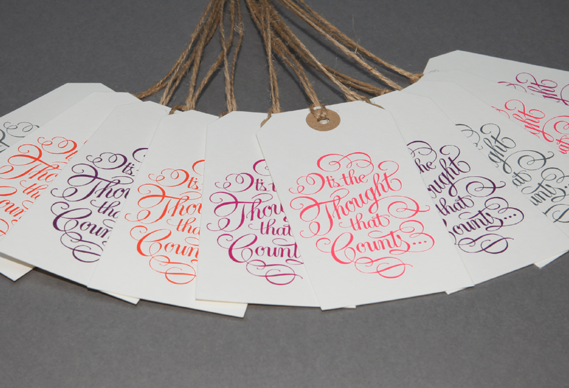 It's the
Thought
that
Counts...